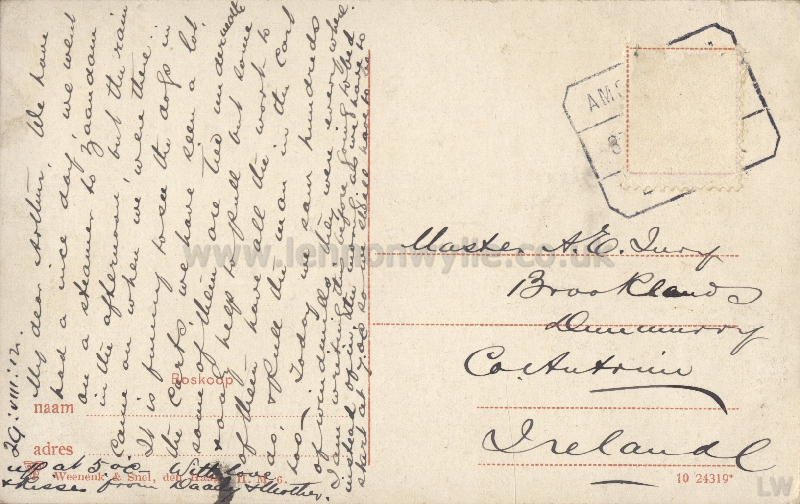 29.VIII.12.
My dear Arthur, We have
had a nice day, we went
on a steamer to Zaandam
in the afternoon, but the rain
came on when we were there.
It is funny to see the dogs in
the carts, we have seen a lot,
some of them are tied underneath
& only help to pull but some
of them have all the work to
do, & pull the man in the cart
too. Today we saw hundreds
of windmills, they were everywhere.
I am writing this before going to bed
instead of in the morning as we have to
start at 7.00 so we shall have to be
up at 5 oc. With love
& kisses from Daddy & Mother.
Boskoop
naam
adres
Weenenk & Snel, den Haag H. M. 6.
AMS
Master A. E. Ivry
Brooklands
Dunmurry
Co. Antrim
Ireland
10 24319*
www.lennonwylie.co.uk
LW